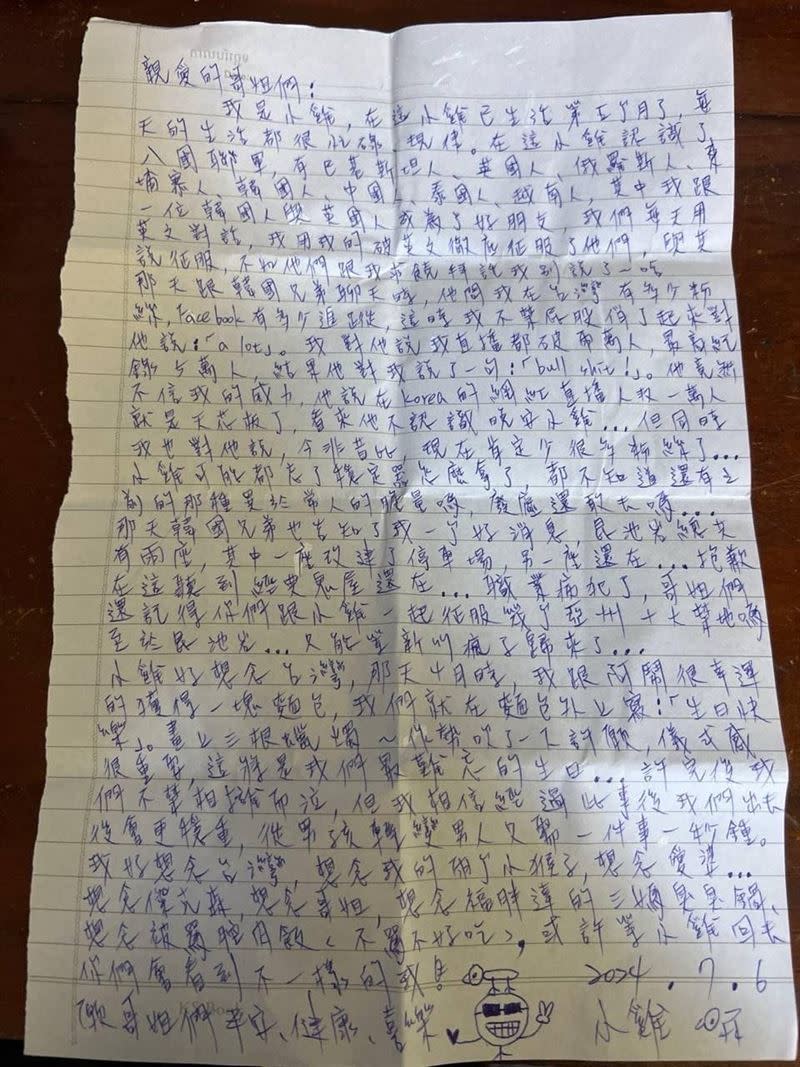 親愛的哥姐們:
我是小雞,在這小雞已生活第五個月了,每
天的生活都很忙碌、規律。在這小雞認識了
八國聯軍,有巴基斯坦人、英國人、俄羅斯人、柬
埔寨人、韓國人、中國人、泰國人、越南人,其中我跟
一位韓國人與英國人成為了好朋友,我們每天用
英文對話,我用我的破英文徹底征服了他們,與其
說征服,不如他們跟我求饒拜託我別說了~哈
那天跟韓國兄弟聊天時,他問我在台灣有多少粉
絲,Facebook有多少追蹤,這時我不禁屁股俏了起來對
他說:「a lot」。我對他說我直播都破兩萬人,最高紀
錄5萬人,結果他對我說了一句:「bull shit!」。他竟然
不信我的威力,他說在Korea的網紅直播人數一萬人
就是天花板了,看來他不認識晚安小雞...但同時
我也對他說,今非昔比,現在肯定少很多粉絲了...
小雞可能都忘了穩定器怎麼拿了,都不知道還有之
前的那種異於常人的膽量嗎,廢墟還敢去嗎...
那天韓國兄弟也告知了我一個好消息,昆池岩總共
有兩座,其中一座改建了停車場,另一座還在...抱歉
在這聽到經典鬼屋還在...職業病犯了,哥姐們
還記得你們跟小雞一起征服幾個亞州十大禁地嗎
至於昆池岩...只能等新叫瘋子歸來了...
小雞好想念台灣,那天4月時,我跟阿鬧很幸運
的獲得一塊麵包,我們就在麵包外上寫:「生日快
樂」。畫上三根蠟燭~作勢吹了一下許願,儀式感
很重要,這將是我們最難忘的生日...許完後我
們不禁相擁而泣,但我相信經過此事後我們出去
後會更穩重,從男孩轉變男人只需一件事一秒鐘。
我好想念台灣,想念我的兩個小猴子,想念雙準...
想念傑克森,想念哥姐,想念福胖達的三媽臭臭鍋、
想念被罵腔佰飯<不罵不好吃>,或許等小雞回去
你們會看到不一樣的我! 2024.7.6
願哥姐們平安、健康、喜樂 小雞